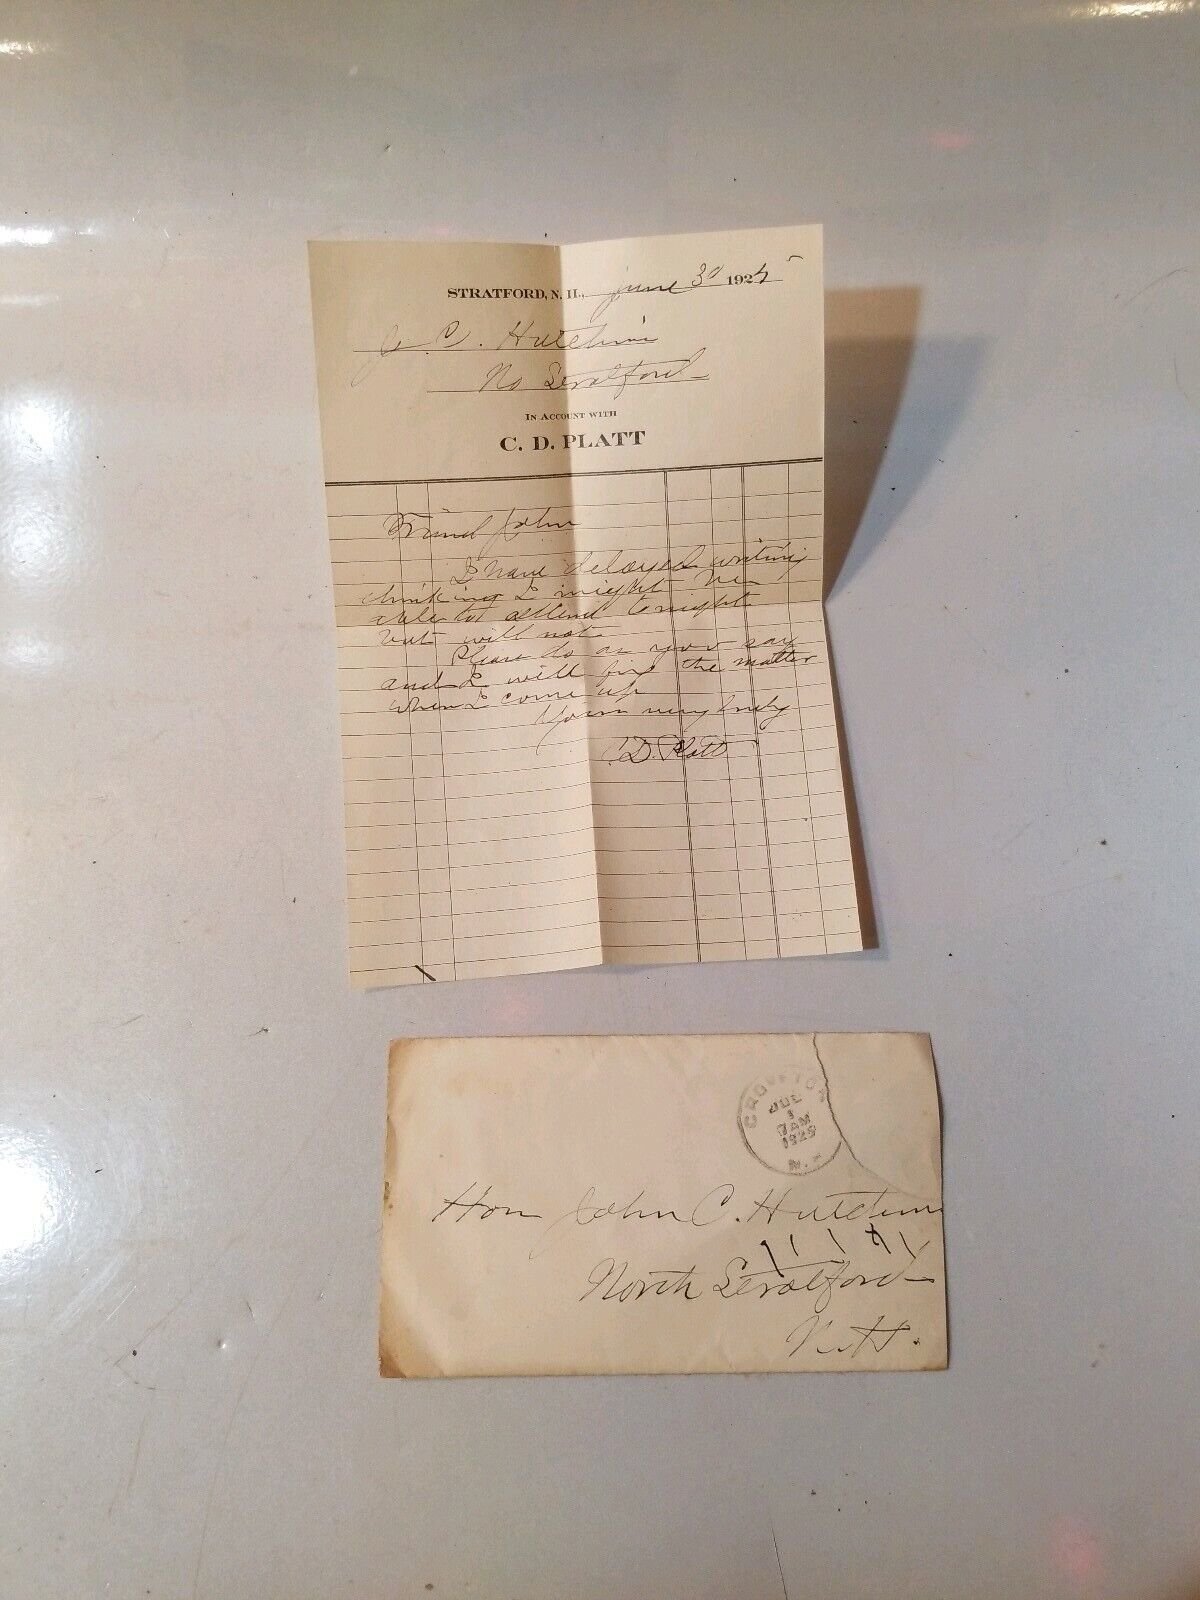 STRATFORD, N. H., June 30 1925
J. C. Hutchins
No Stratford
IN ACCOUNT WITH
C. D. PLATT
Friend John
I have delayed writing
thinking I might be
able to attend tonight
but will not
Please do as you say
and I will fix the matter
when I come up
Yours very truly
C. D. Platt
N.
7 AM
1925
Hon John C. Hutchins
North Stratford
N. H.